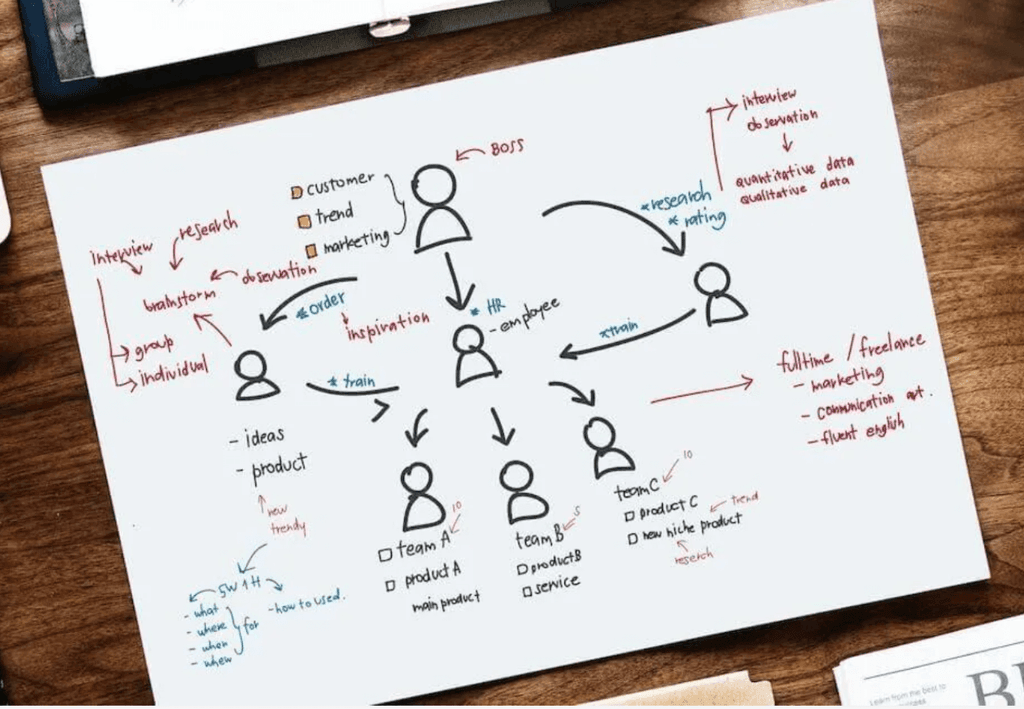 BOSS
customer
trend
marketing
interview
observation
quantitative data
qualitative data
*research
*rating
interview
research
observation
brainstorm
group
individual
*order
inspiration
* HR
- employee
*train
* train
- ideas
- product
new
trendy
5W1H
- what
- where
- when
- when
for
- how to used.
team A
10
product A
main product
team B
5
product B
service
team C
10
product C
trend
new niche product
reserch
fulltime / freelance
- marketing
- communication
- fluent english
Learn from me best to